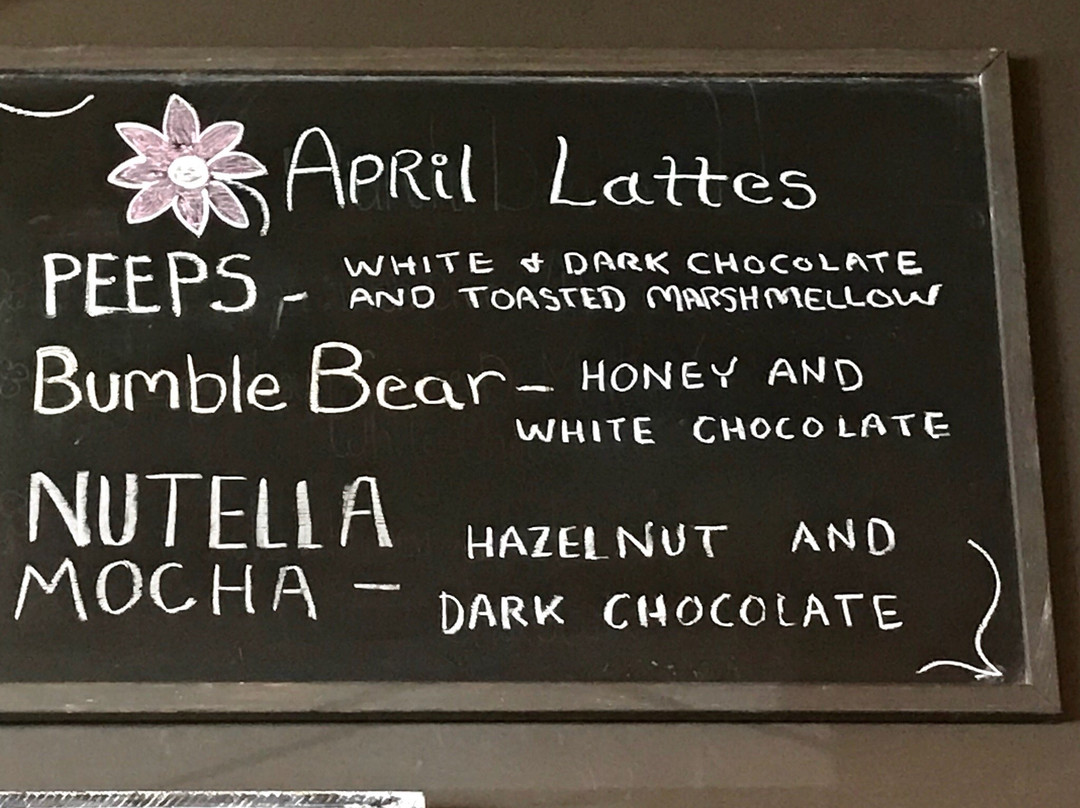 April Lattes
PEEPS - WHITE & DARK CHOCOLATE
AND TOASTED MARSHMELLOW
Bumble Bear - HONEY AND
WHITE CHOCOLATE
NUTELLA
HAZELNUT AND
MOCHA -
DARK CHOCOLATE